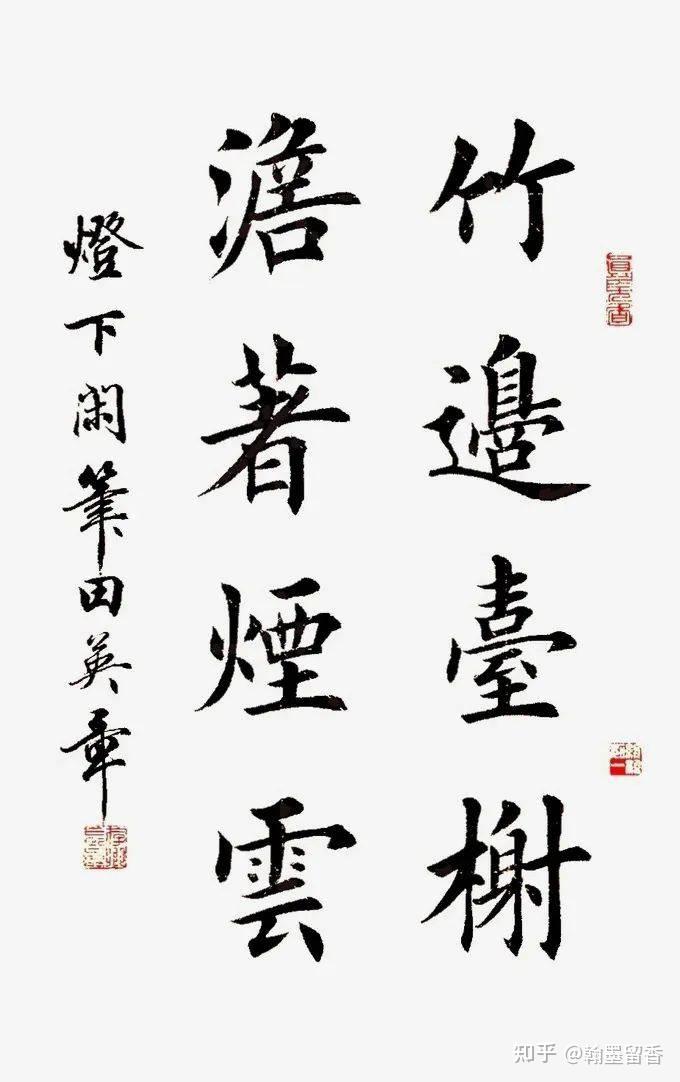 竹邉臺榭
澹著煙雲
燈下閑筆田英章
知乎 @翰墨留香